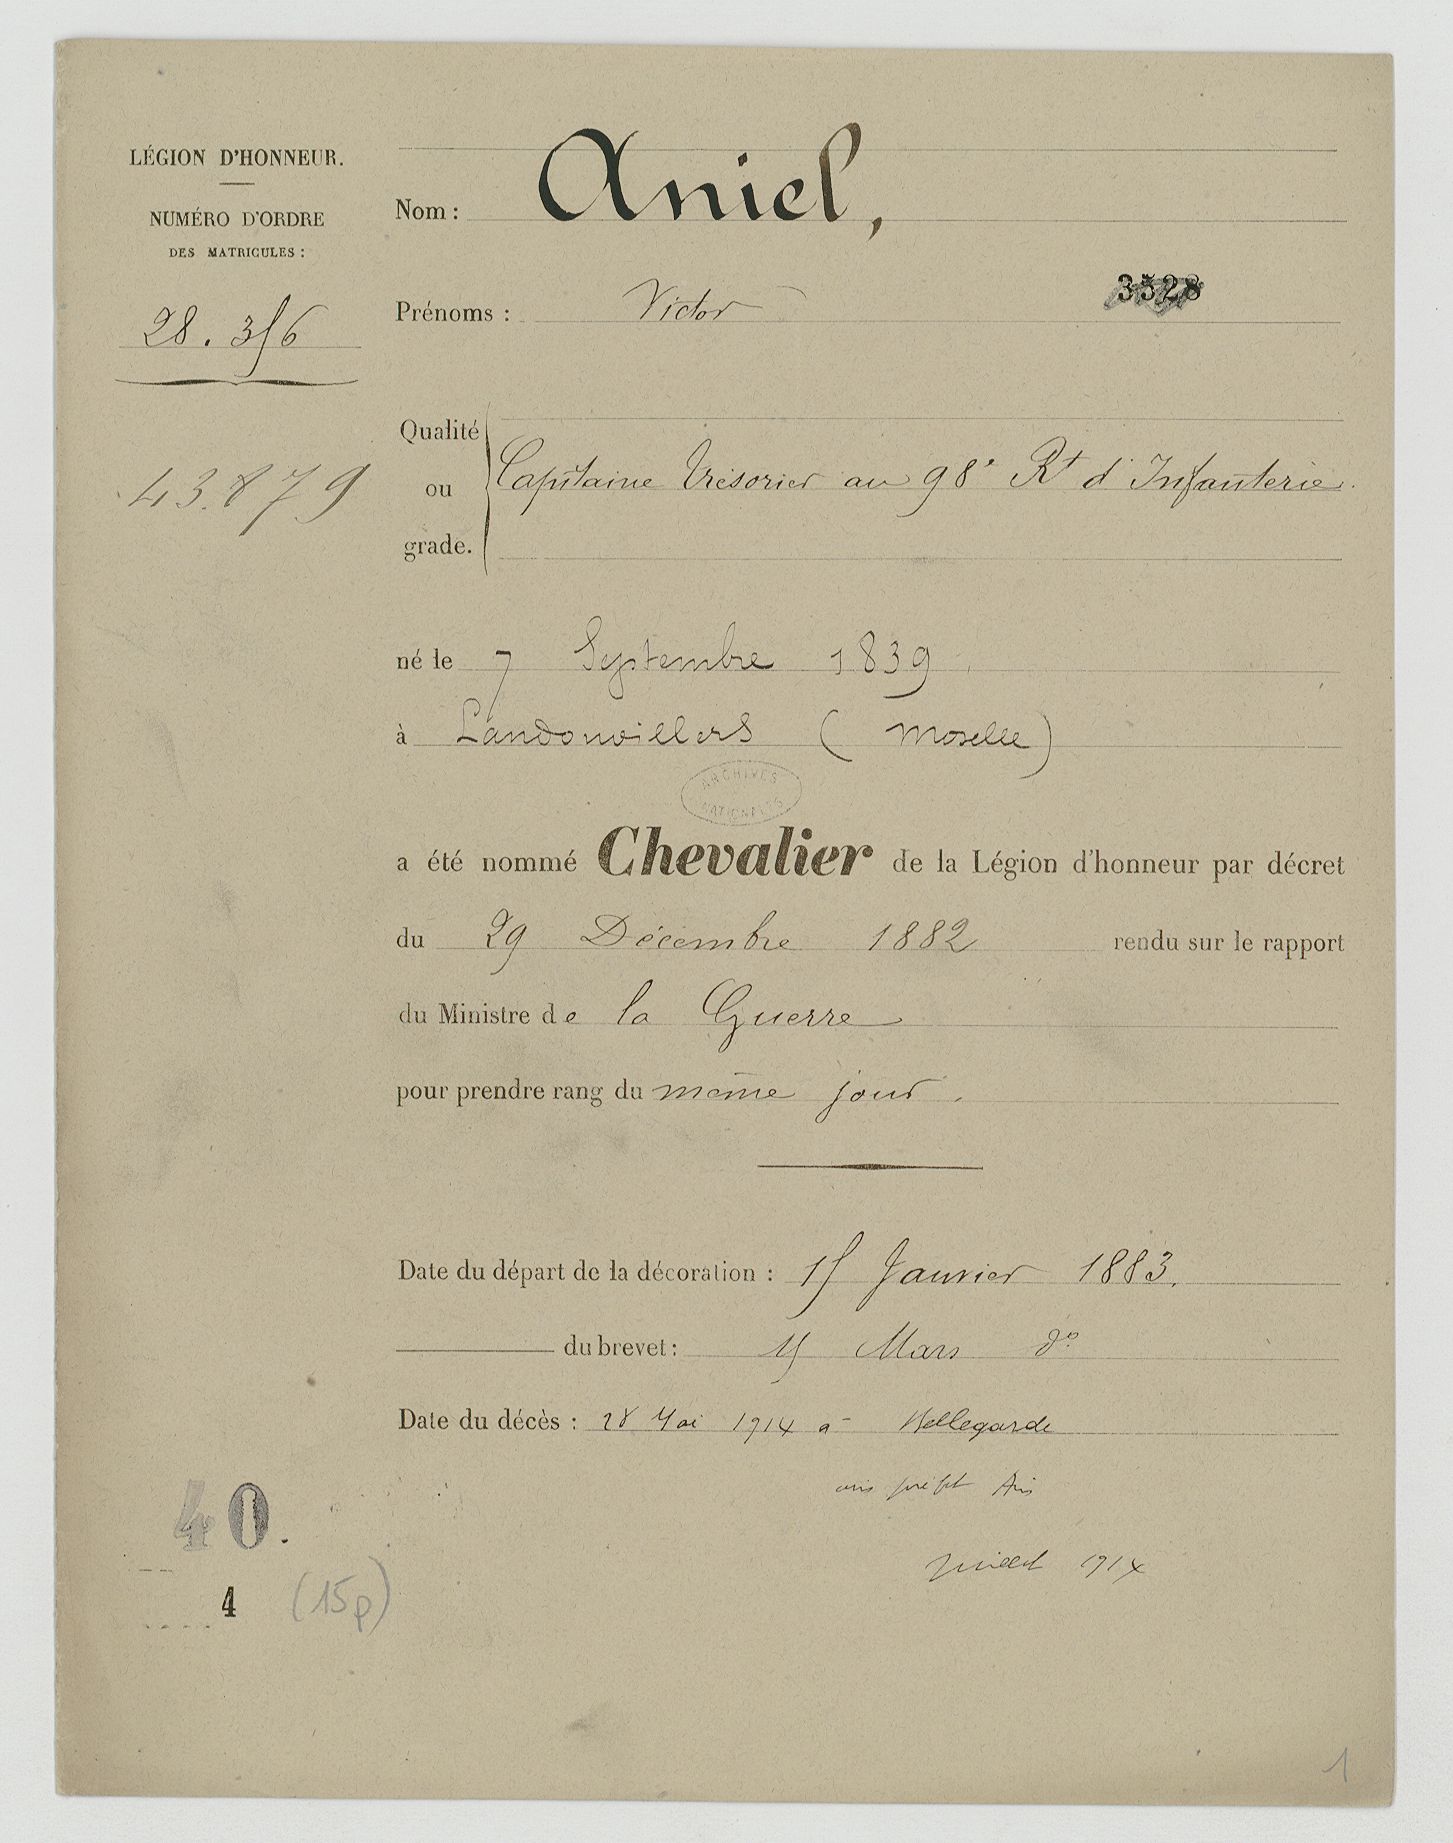 LÉGION D'HONNEUR.
NUMÉRO D'ORDRE
DES MATRICULES :
28.356
43.879
Nom : Aniel,
3328
Prénoms : Victor
Qualité
ou
grade.
Capitaine Trésorier au 98e Rt d'Infanterie.
né le 7 Septembre 1839
à Landonvillers (Moselle)
ARCHIVES NATIONALES
a été nommé Chevalier de la Légion d'honneur par décret
du 29 Décembre 1882 rendu sur le rapport
du Ministre de la Guerre
pour prendre rang du même jour.
Date du départ de la décoration : 15 Janvier 1883.
du brevet : 15 Mars do
Date du décès : 28 Mai 1914 à Bellegarde
avis préfet Ain
Juillet 1914
40.
4 (15p)
1